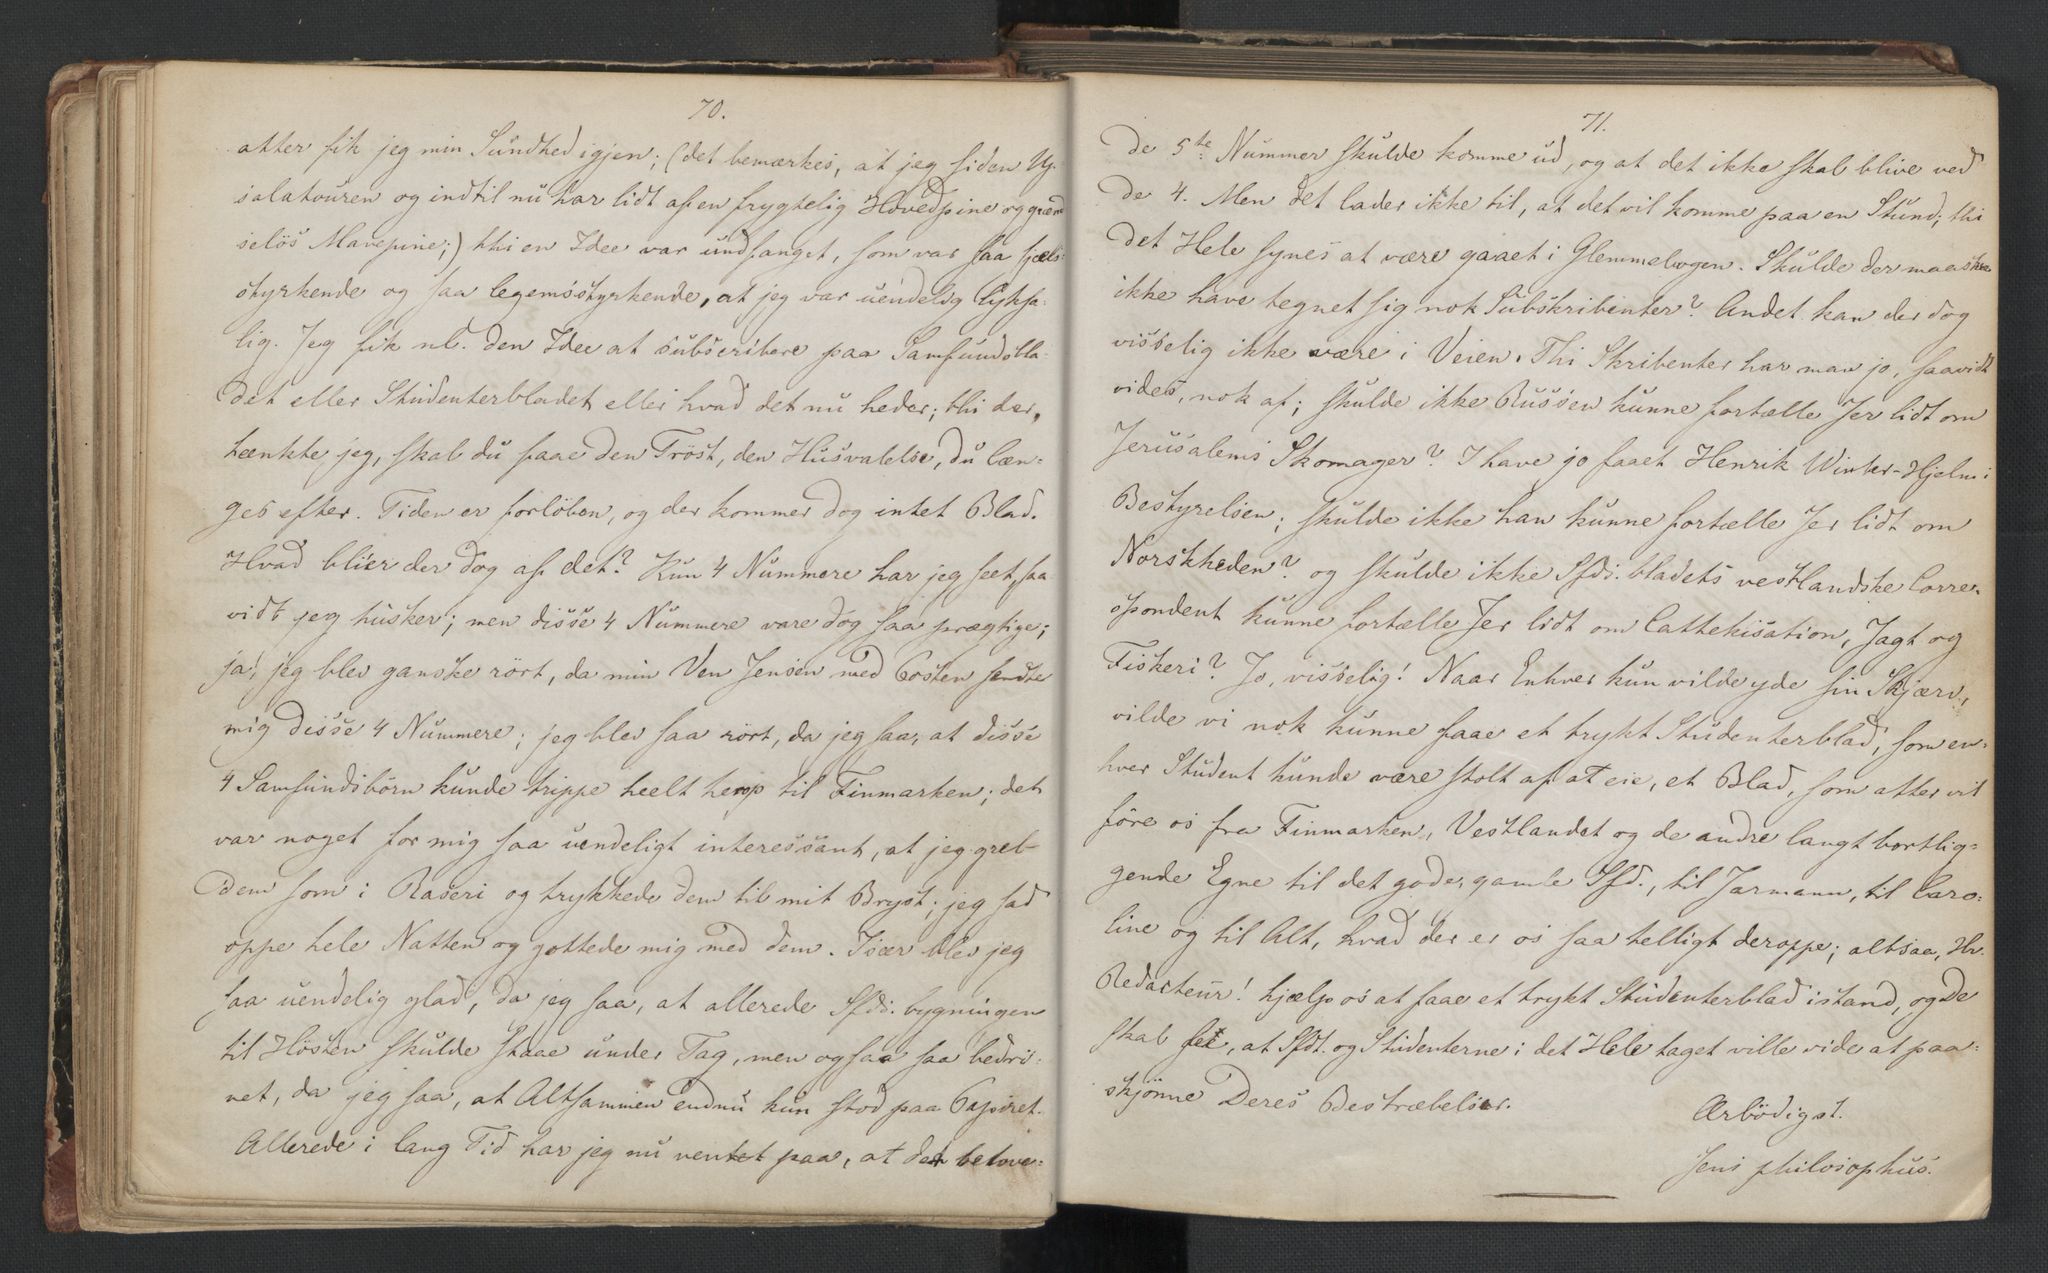 70.
atter fik jeg min Sundhed igjen; (det bemærkes, at jeg siden Up-
salatouren og indtil nu har lidt af en frygtelig Hovedpine og grænd-
selös Mavepine;) thi en Idee var undfanget, som var saa sjæls-
styrkende og saa legemsstyrkende, at jeg var uendelig lyksa-
lig. Jeg fik nl. den Idee at subscribere paa Samfundsbla-
det eller Studenterbladet eller hvad det nu heder; thi der,
tænkte jeg, skal du faae den Tröst, den Husvalelse, du læn-
ges efter. Tiden er forlöben, og der kommer dog intet Blad.
Hvad blier der dog af det? Kun 4 Nummere har jeg seet, saa-
vidt jeg husker; men disse 4 Nummere vare dog saa prægtige;
ja! jeg blev ganske rört, da min Ven Jensen med Posten sendte
mig disse 4 Nummere; jeg blev saa rört, da jeg saa, at disse
4 Samfundsbörn kunde trippe heelt herop til Finmarken; det
var noget for mig saa uendeligt interessant, at jeg greb
dem som i Raseri og trykkede dem til mit Bryst; jeg sad
oppe hele Natten og gottede mig med dem. Især blev jeg
saa uendelig glad, da jeg saa, at allerede Sfds. bygningen
til Hösten skulde staae under Tag, men ogsaa saa bedrö-
vet, da jeg saa, at Altsammen endnu kun stod paa Papiret.
Allerede i lang Tid har jeg nu ventet paa, at det belove-
71.
de 5te Nummer skulde komme ud, og at det ikke skal blive ved
de 4. Men det lader ikke til, at det vil komme paa en Stund; thi
det Hele synes at være gaaet i Glemmebogen. Skulde der maaskee
ikke have tegnet sig nok Subskribenter? Andet kan der dog
visselig ikke være i Veien. Thi Skribenter har man jo, saavidt
vides, nok af; skulde ikke Russen kunne fortælle Jer lidt om
Jerusalems Skomager? I have jo faaet Henrik Winter-Hjelm i
Bestyrelsen; skulde ikke han kunne fortælle Jer lidt om
Norskheden? og skulde ikke Sfds. bladets vestlandske Corre-
spondent kunne fortælle Jer lidt om Cattekisation, Jagt og
Fiskeri? Jo, visselig! Naar Enhver kun vilde yde sin Skjærv,
vilde vi nok kunne faae et trykt Studenterblad, som en-
hver Student kunde være stolt af at eie, et Blad, som atter vil
före os fra Finmarken, Vestlandet og de andre langt bortlig-
gende Egne til det gode, gamle Sfd., til Jarmann, til Caro-
line og til Alt, hvad der er os saa helligt deroppe; altsaa, Hr.
Redacteur! hjælp os at faae et trykt Studenterblad istand, og De
skal see, at Sfdt. og Studenterne i det Hele taget ville vide at paa-
skjönne Deres Bestræbelser.
Ærbödigst.
Jens philosophus.